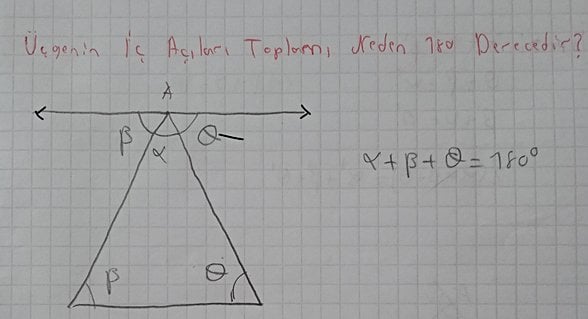 Üçgenin İç Açıları Toplamı Neden 180 Derecedir?
A
β α θ
α + β + θ = 180°
β θ